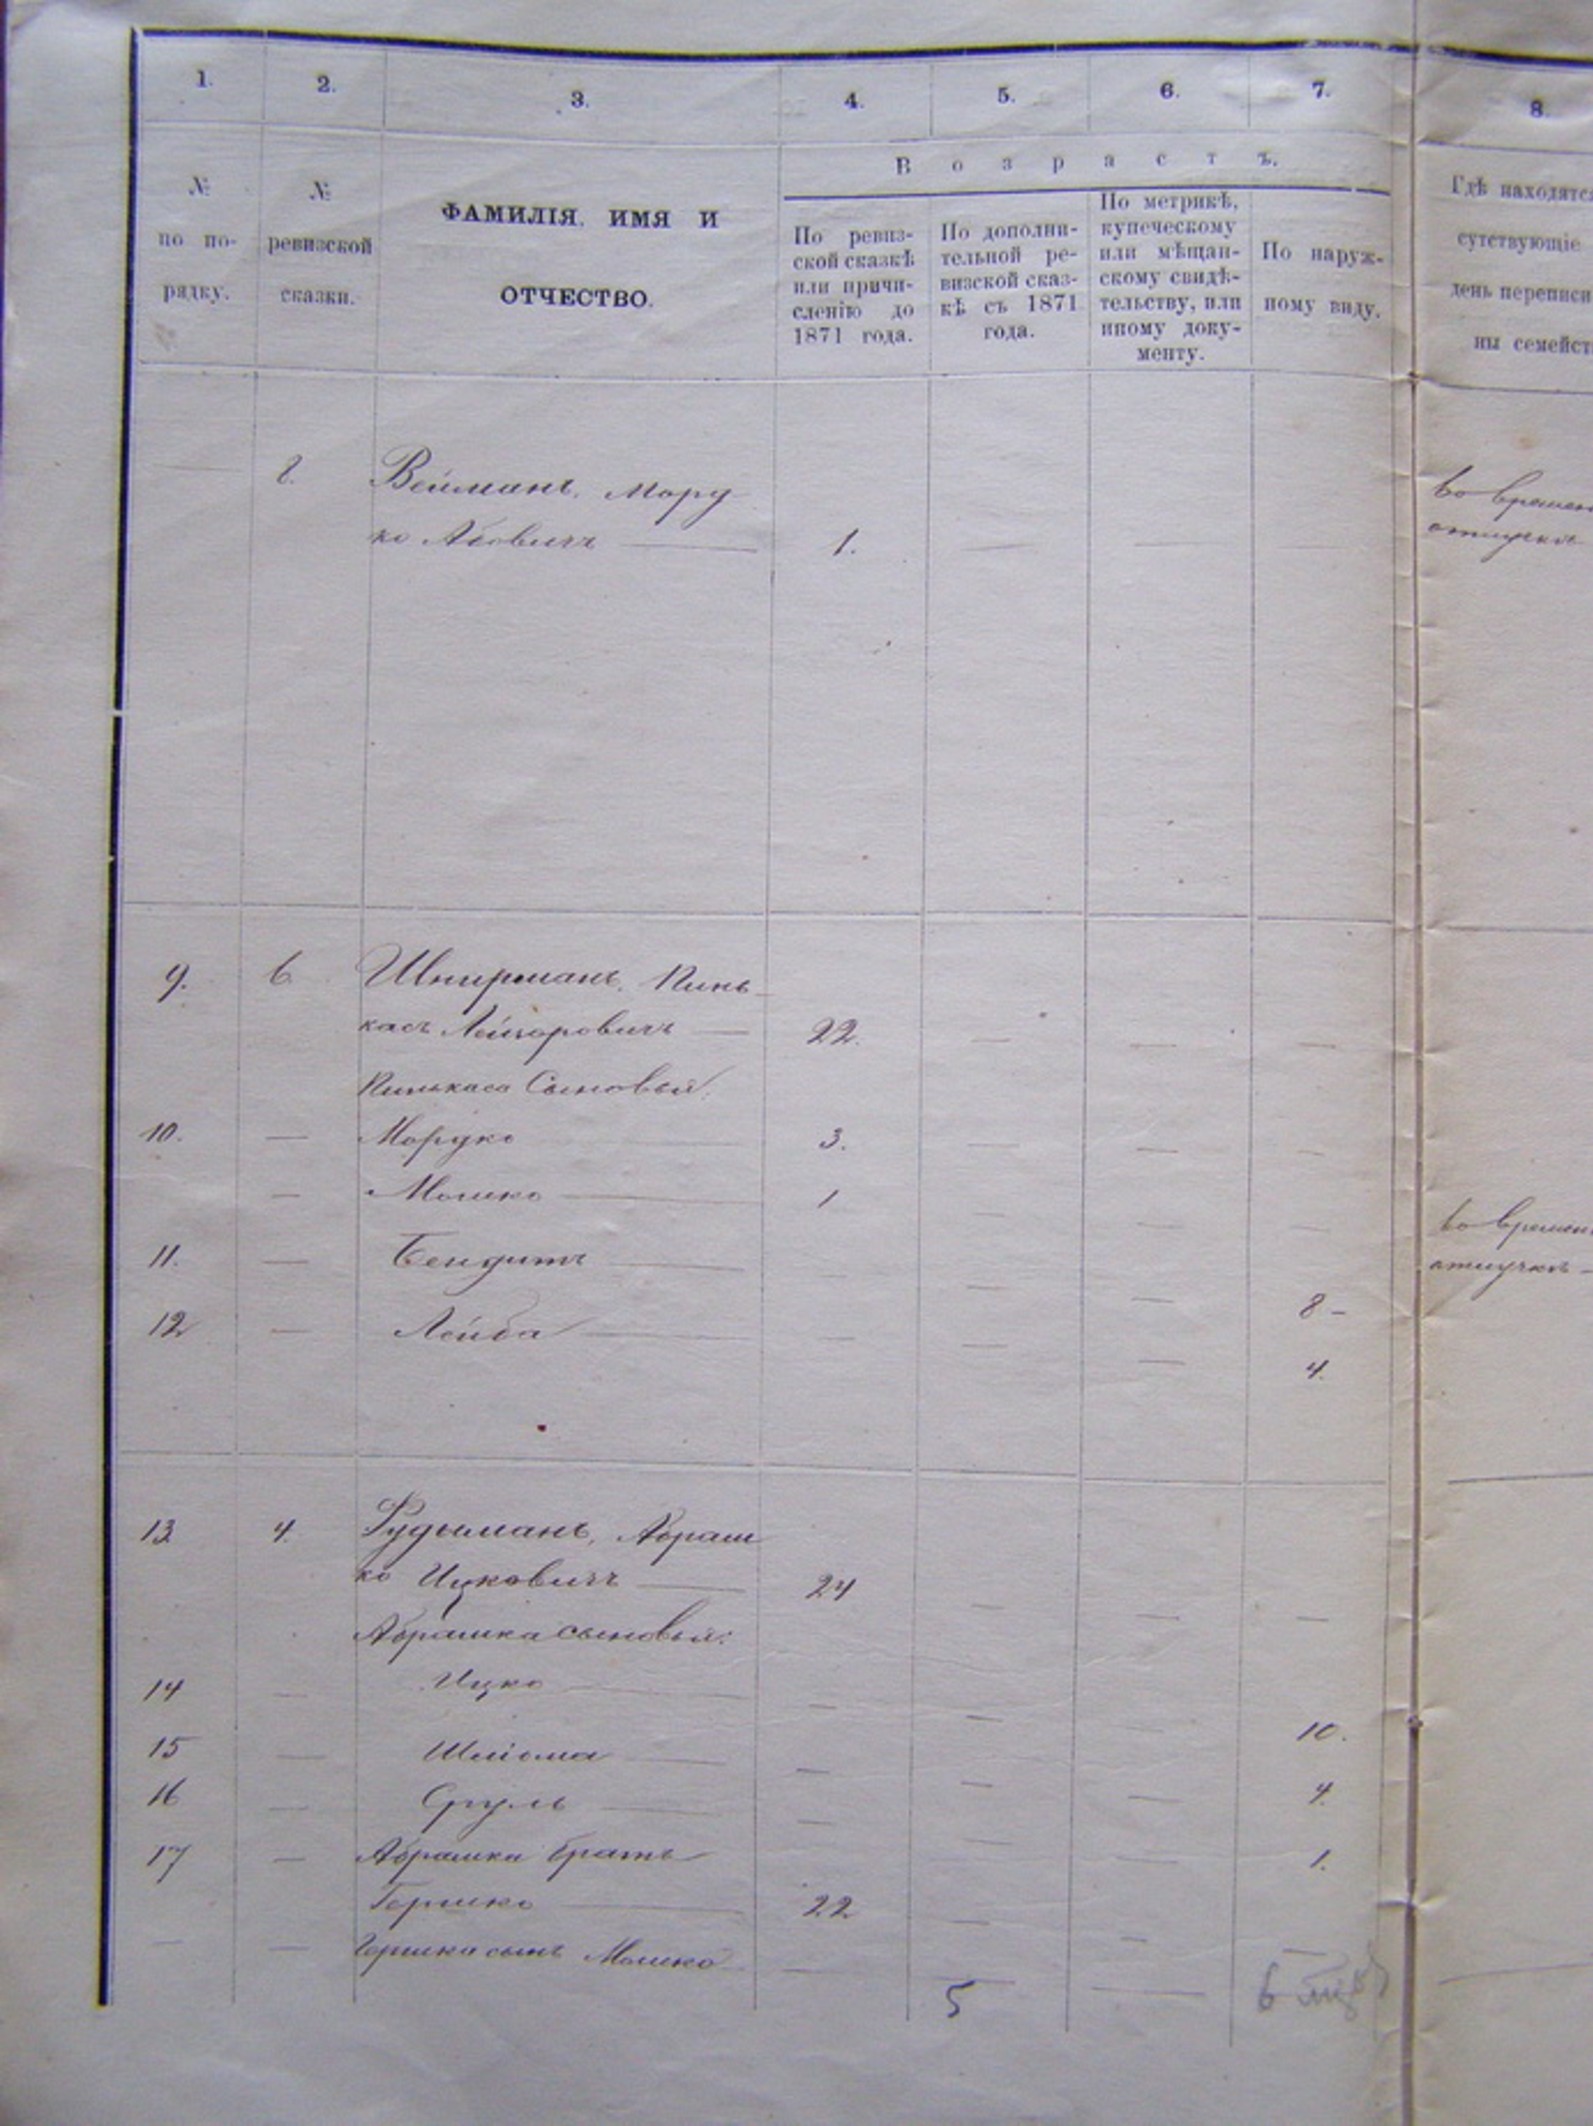 1. 2. 3. 4. 5. 6. 7. 8.
№
по по-
рядку.
№
ревизской
сказки.
ФАМИЛІЯ, ИМЯ И
ОТЧЕСТВО.
Возрастъ.
По ревиз-
ской сказкѣ
или причи-
сленію до
1871 года.
По дополни-
тельной ре-
визской сказ-
кѣ съ 1871
года.
По метрикѣ,
купеческому
или мѣщан-
скому свидѣ-
тельству, или
иному доку-
менту.
По наруж-
ному виду.
Гдѣ находятся
сутствующіе
день переписи
ны семейст
Вейманъ, Морд
ко Абовичъ 1.
во времен
отлучкѣ
9. 6 Шнирманъ, Пинь-
касъ Лейзоровичъ 22.
Пинькаса Сыновья:
10. — Мордко 3. — — —
— Мошко 1 — — —
во времен
11. — Бендитъ — — 8 –
отлучкѣ –
12 — Лейба — — — 4.
13. 4. Рудыманъ, Абраш
ко Ицковичъ 24 — — —
Абрашка сыновья:
14 — Ицко — — — 10.
15 — Шлиома — — — 4.
16 — Сруль — — — 1.
17 — Абрашки братъ
Гершко 22 — —
— — Гершка сынъ Мошко — — —
5 6